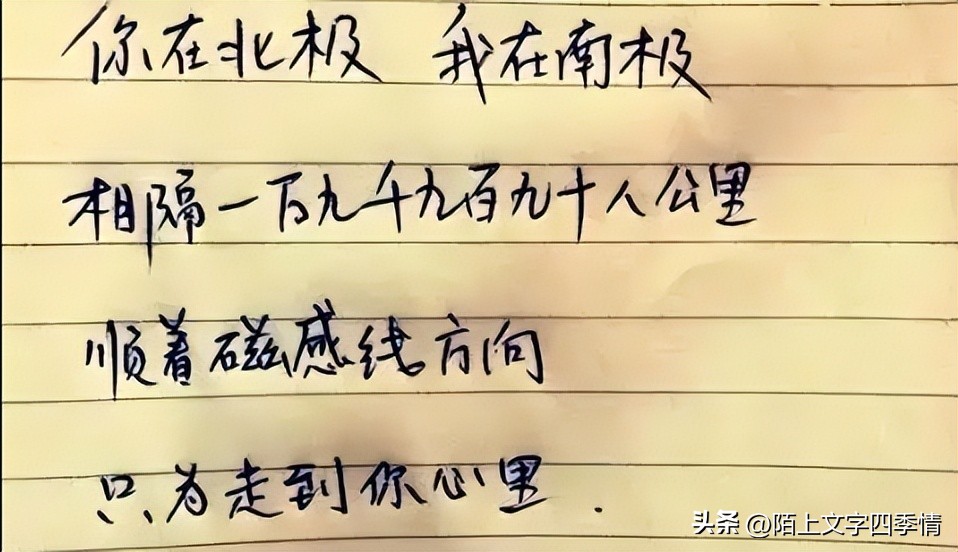 你在北极 我在南极
相隔一万九千九百九十八公里
顺着磁感线方向
只为走到你心里.
头条 @陌上文字四季情